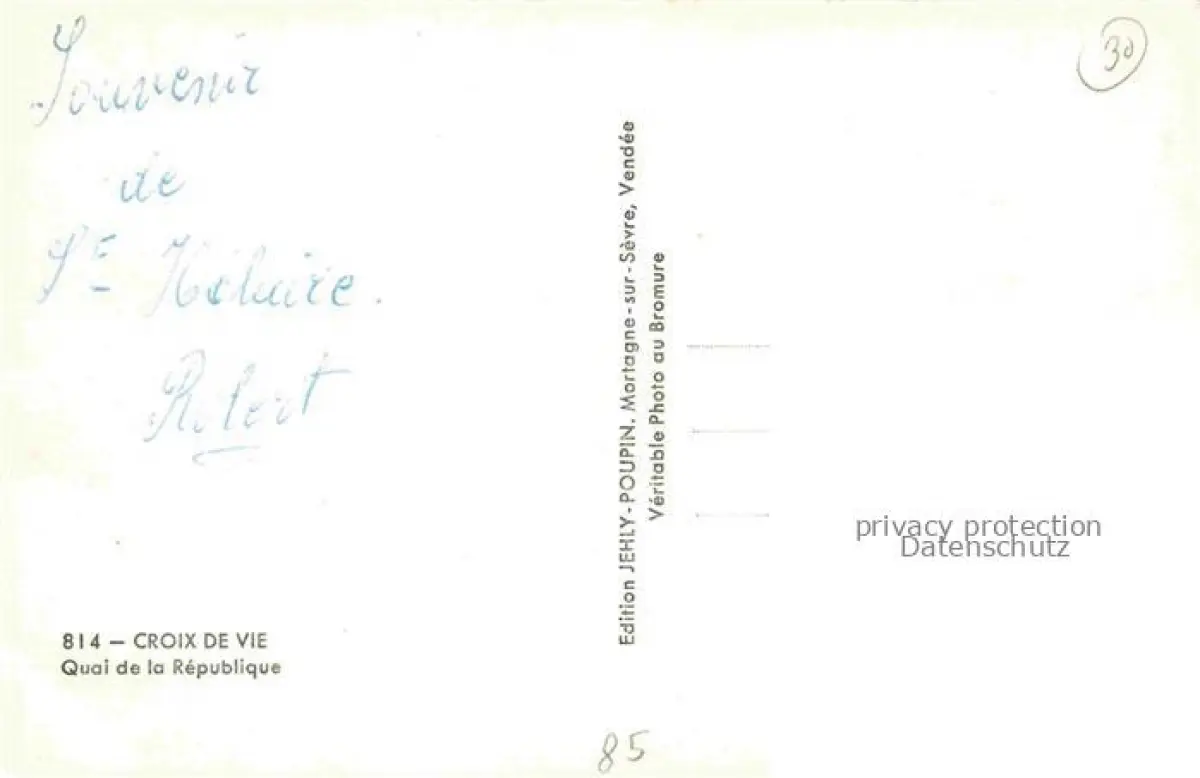 Souvenir
de
St Hilaire.
Robert
30
Edition JEHLY-POUPIN, Mortagne-sur-Sèvre, Vendée
Véritable Photo au Bromure
privacy protection
Datenschutz
814 — CROIX DE VIE
Quai de la République
85